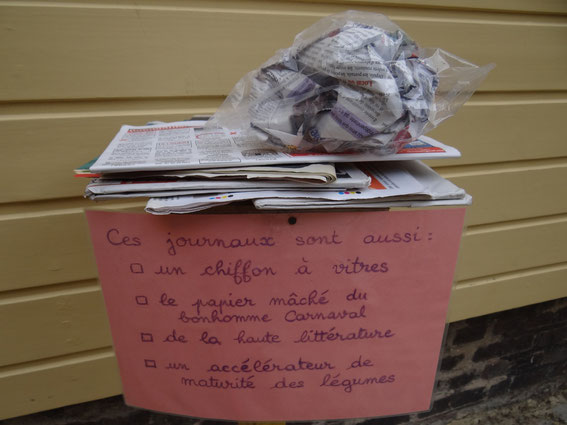 Ces journaux sont aussi :
□ un chiffon à vitres
□ le papier mâché du
bonhomme Carnaval
□ de la haute littérature
□ un accélérateur de
maturité des légumes